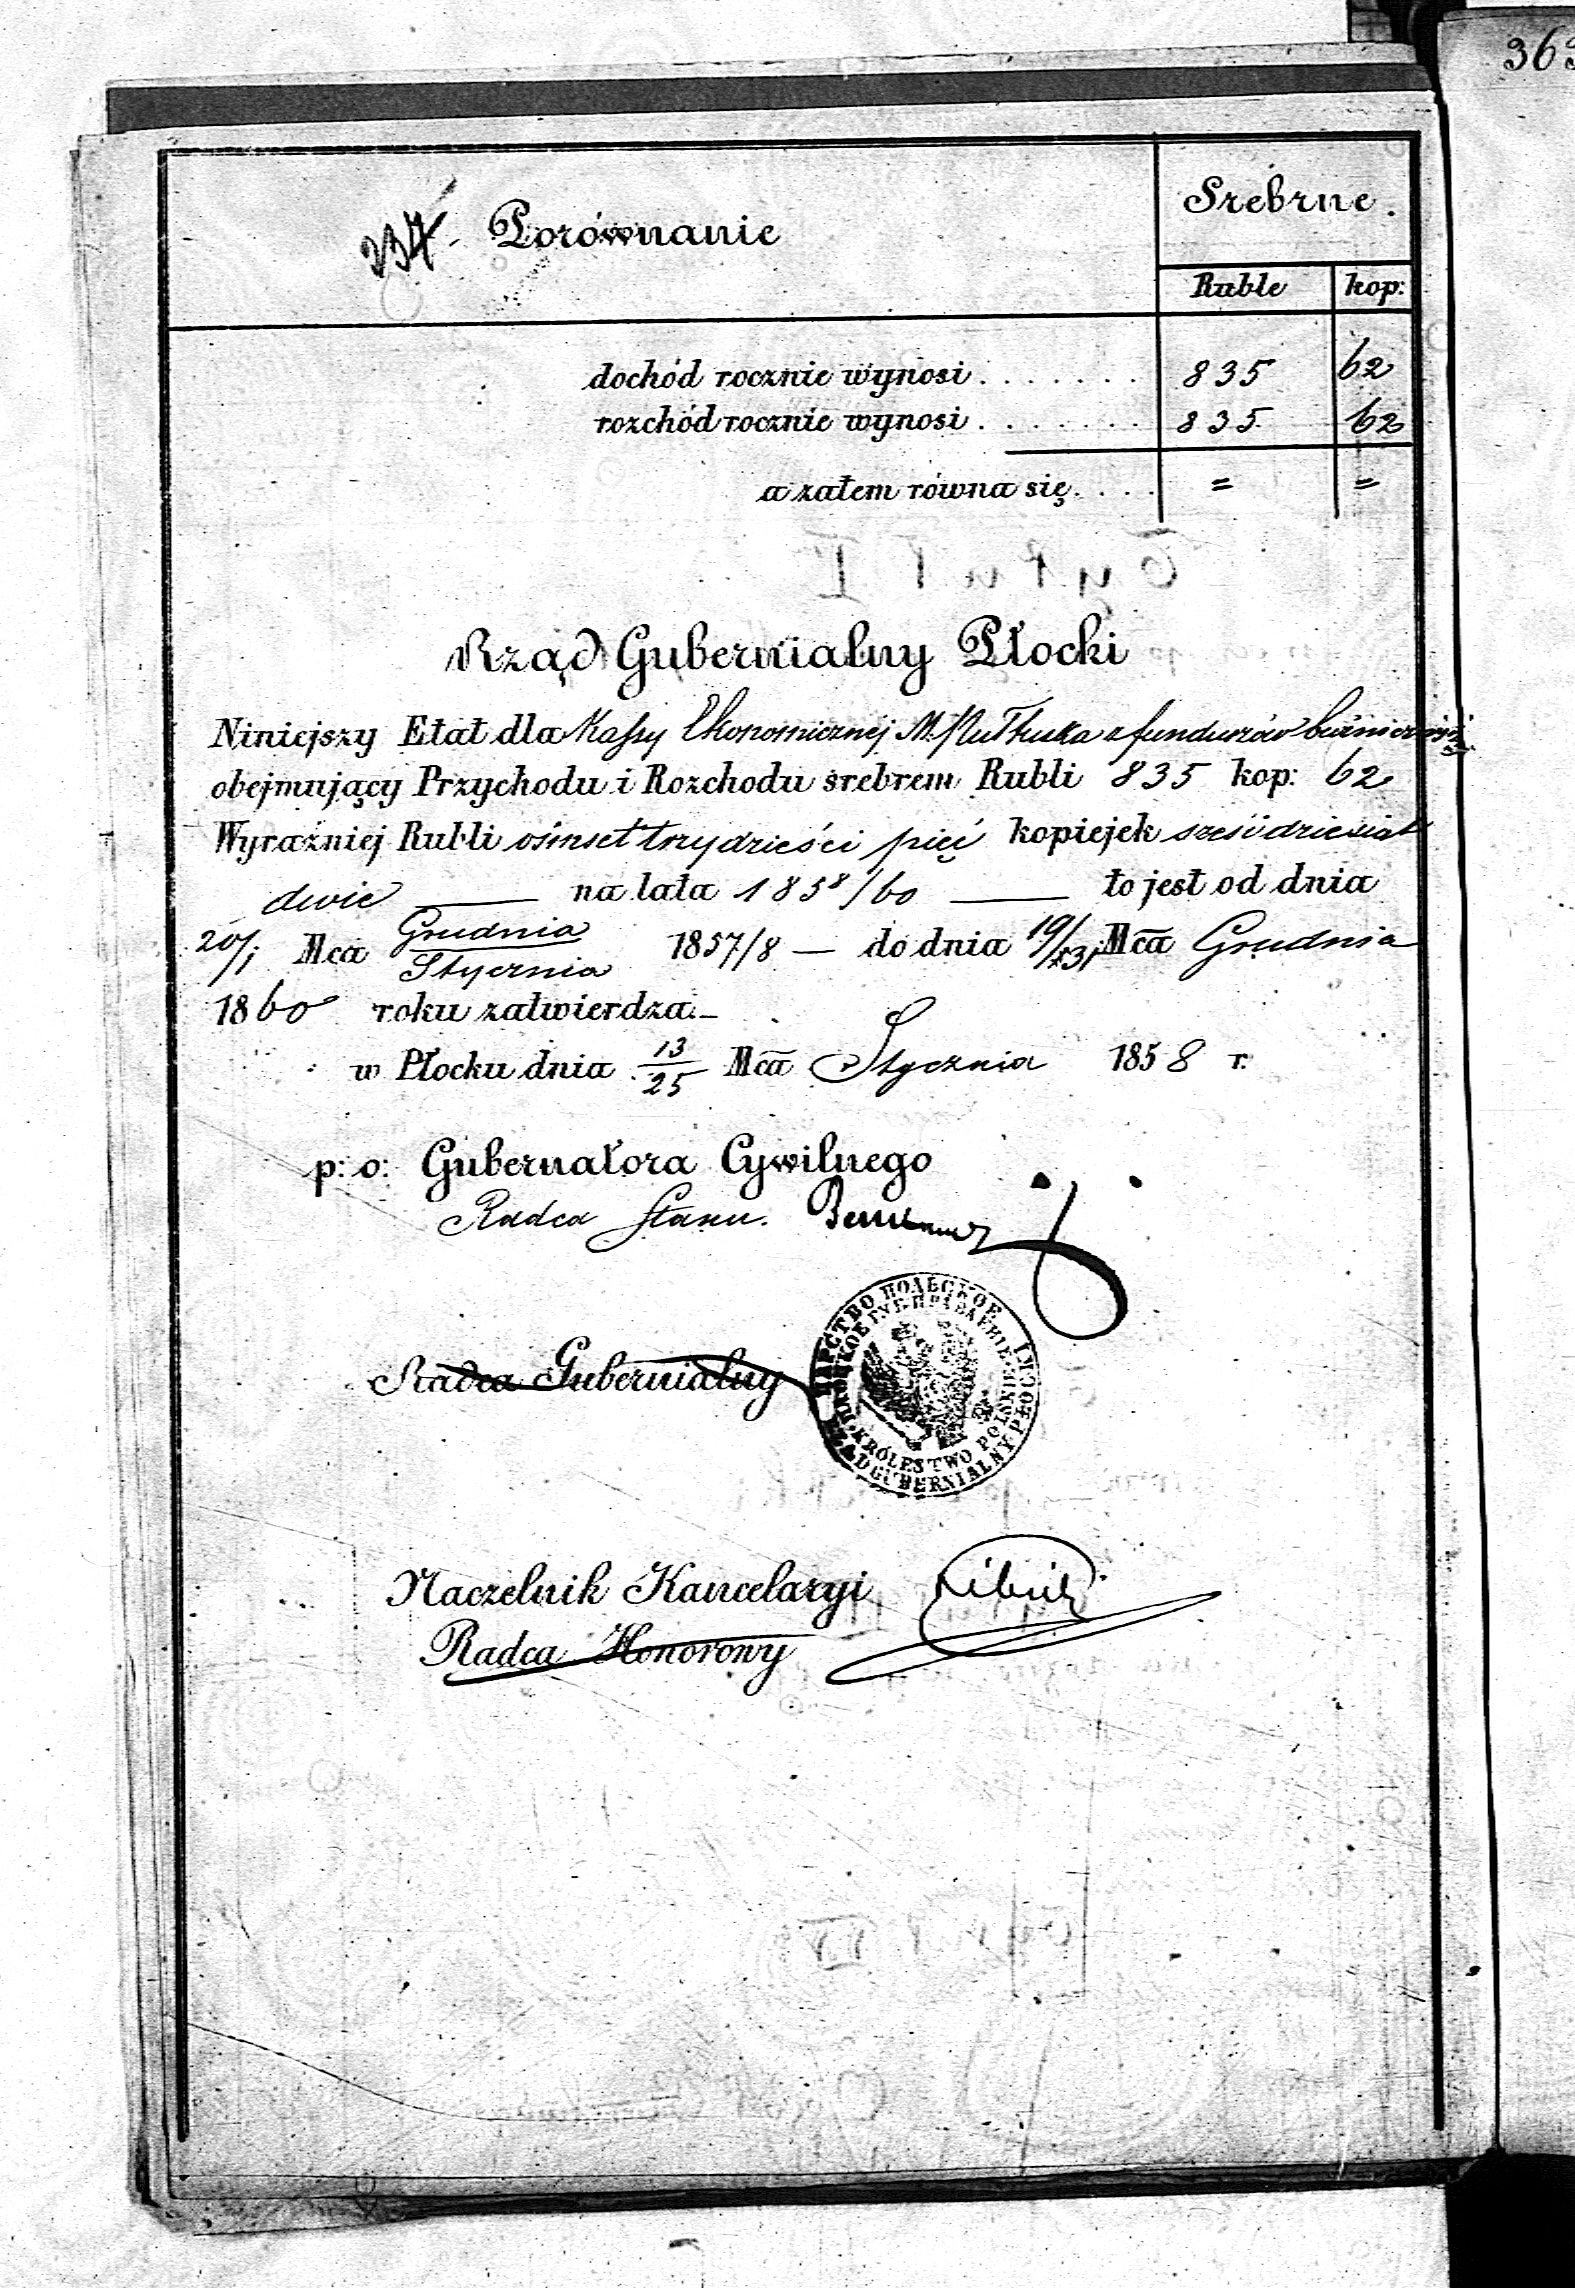 363
Porównanie
Srebrne.
Ruble kop:
dochód rocznie wynosi . . . . . . . 835 62
rozchód rocznie wynosi . . . . . . . 835 62
a zatem równa się. . . . = =
Rząd Gubernialny Płocki
Niniejszy Etat dla Kassy Ekonomicznej M. Pułtuska z funduszów bóżniczych
obejmujący Przychodu i Rozchodu srebrem Rubli 835 kop: 62
Wyraźniej Rubli ośmset trzydzieści pięć kopiejek sześćdziesiąt
dwie — na lata 1858/60 — to jest od dnia
20/1 Mca Grudnia/Stycznia 1857/8 — do dnia 19/31 Mca Grudnia
1860 roku zatwierdza.—
w Płocku dnia 13/25 Mca Stycznia 1858 r.
p: o: Gubernatora Cywilnego
Radca Stanu.
Radca Gubernialny
ЦАРСТВО ПОЛЬСКОЕ
ПЛОЦКОЕ ГУБ. ПРАВЛЕНИЕ
KRÓLESTWO POLSKIE
RZĄD GUBERNIALNY PŁOCKI
Naczelnik Kancelaryi
Radca Honorowy